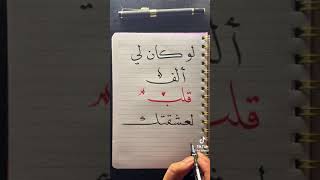 لو كان لي
ألف
قلب
لعشقتك
TikTok